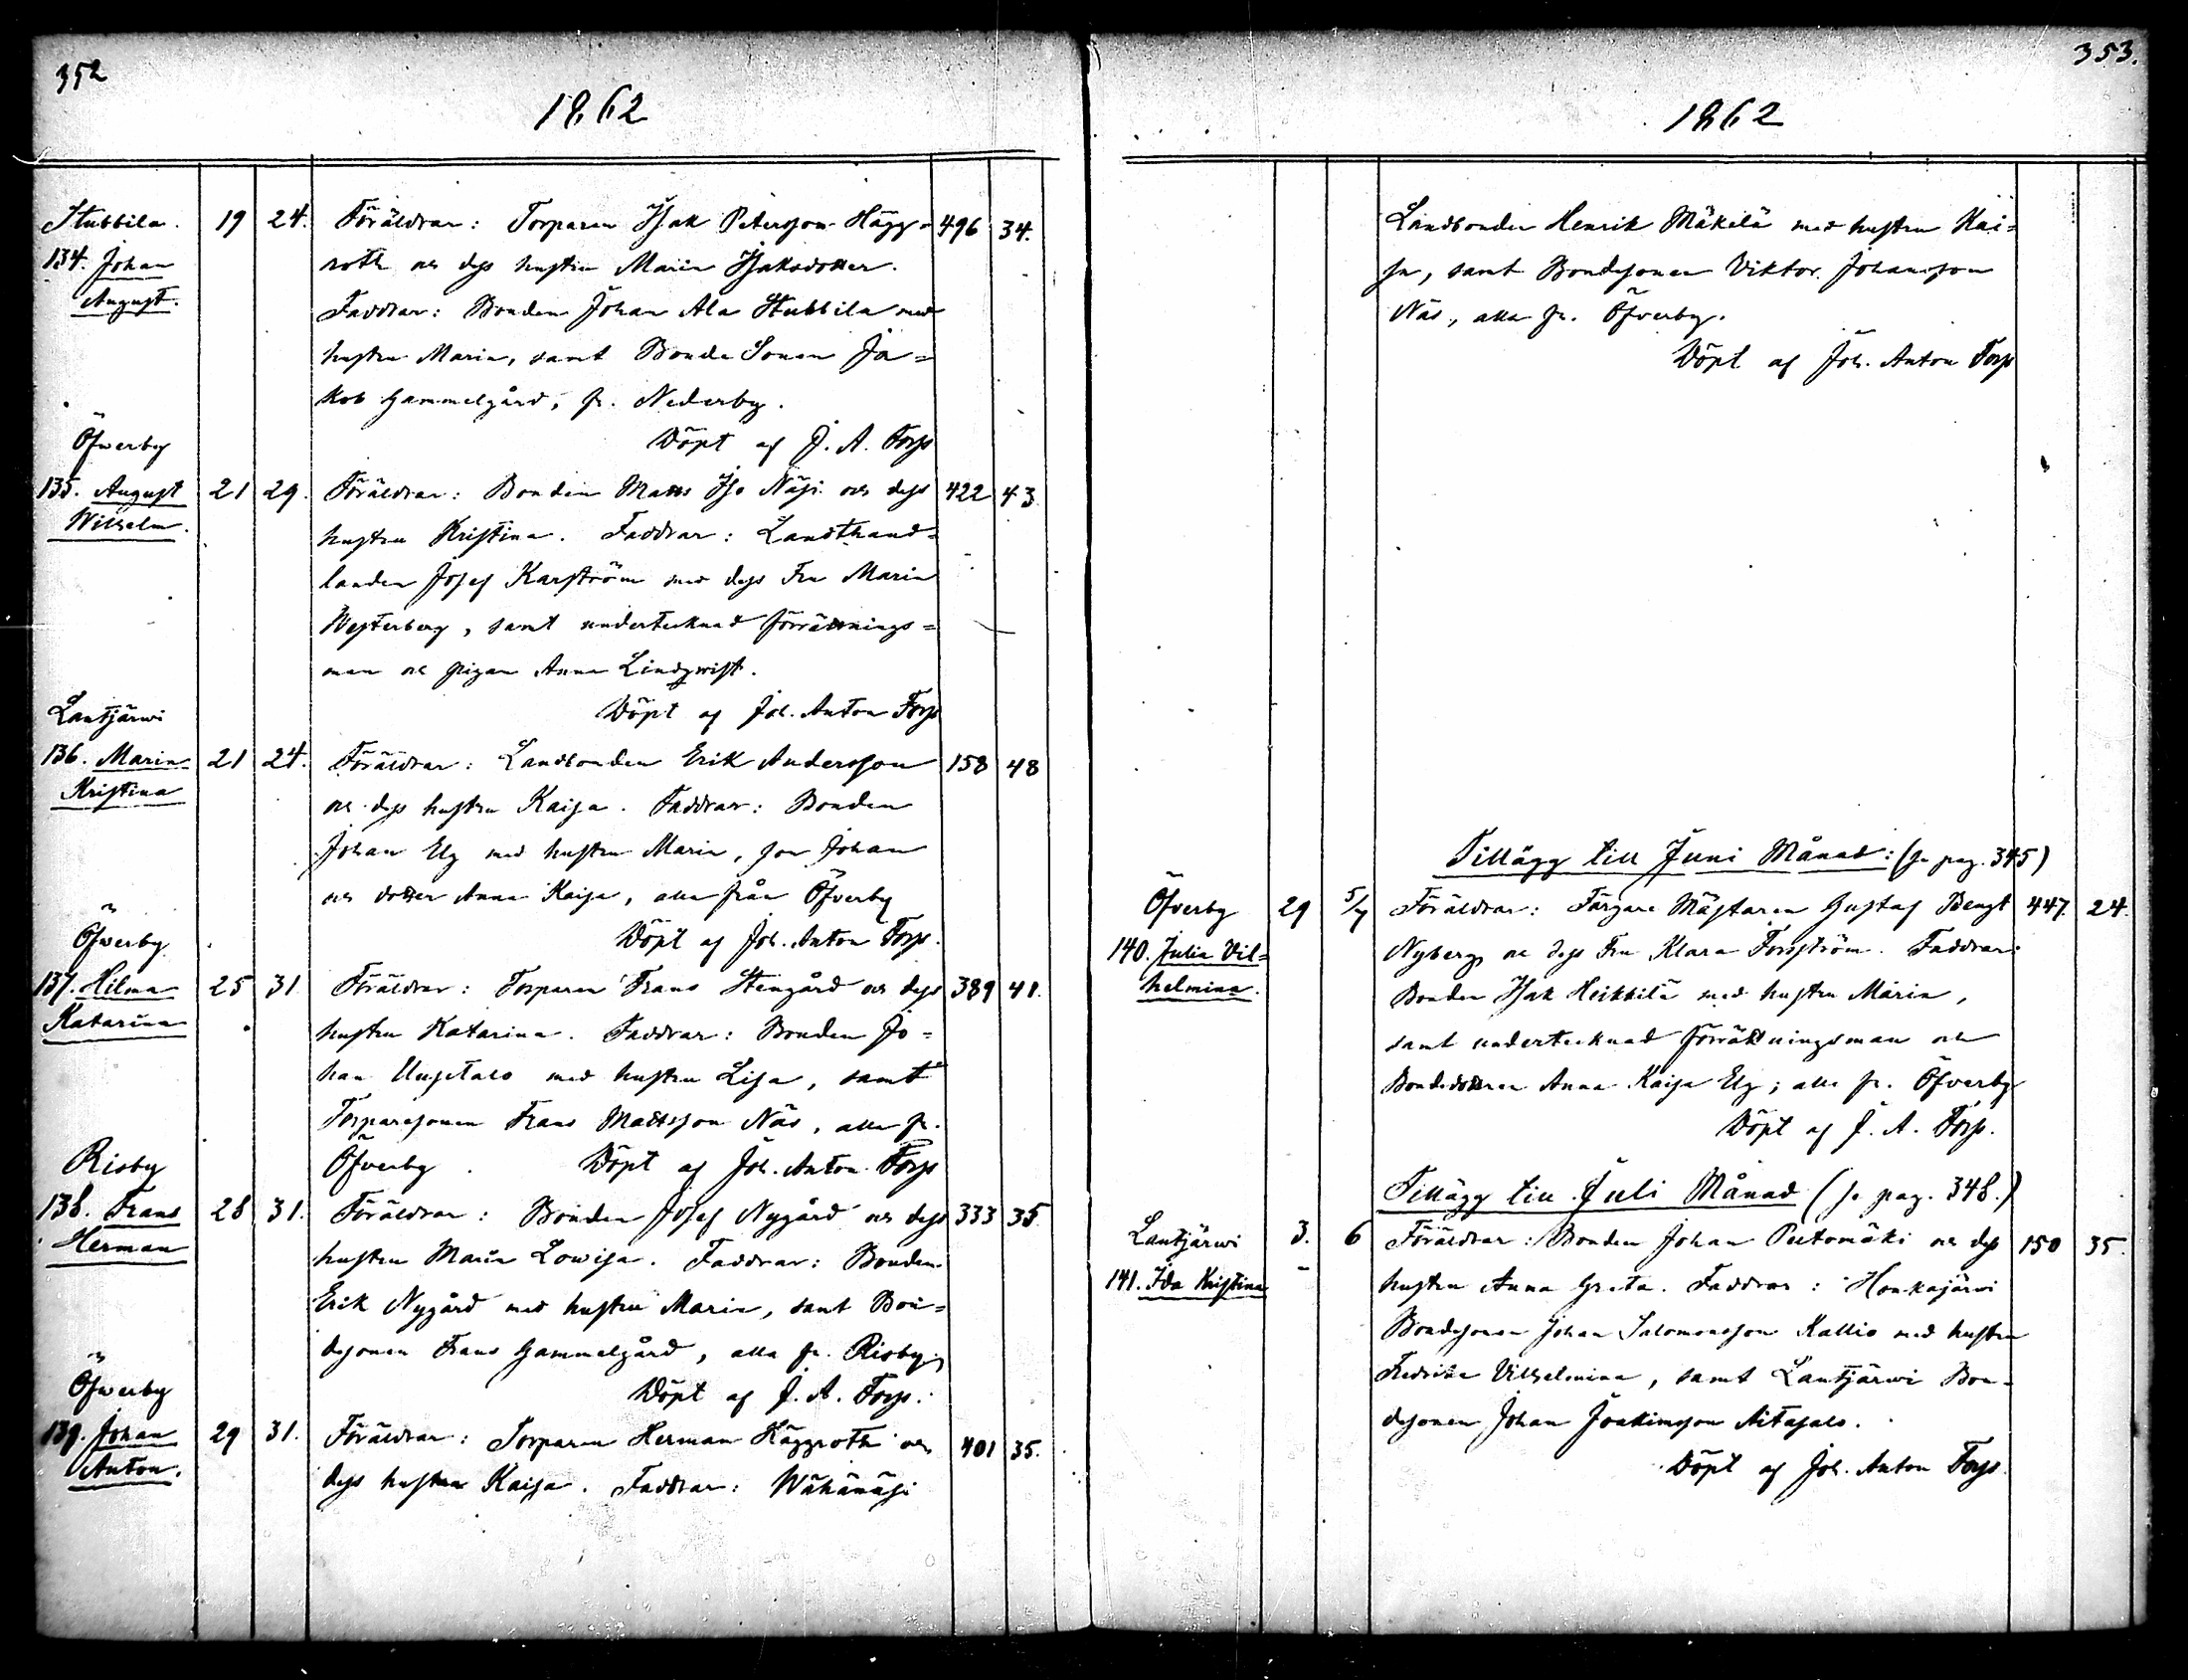 352
1862
Stubbila. 19 24. Föräldrar: Torparen Isak Petersson Hägg= 496 34.
134. Johan roth och dess hustru Maria Isaksdotter.
August. Faddrar: Bonden Johan Ala Stubbila med
hustru Maria, samt Bonde Sonen Ja=
kob Gammelgård, fr. Nederby.
Öfwerby Döpt af J. A. Forss
135. August 21 29. Föräldrar: Bonden Matts Iso Näsi och dess 422 43.
Wilhelm. hustru Kristina. Faddrar: Landthand=
landen Josef Karström med dess Fru Maria
Westerberg, samt undertecknad förrättnings=
man och pigan Anna Lindqwist.
Lantjärwi Döpt af Joh. Anton Forss
136. Maria 21 24. Föräldrar: Landbonden Erik Andersson 158 48
Kristina och dess hustru Kaisa. Faddrar: Bonden
Johan Elg med hustru Maria, son Johan
och dotter Anna Kaisa, alla från Öfverby
Öfwerby Döpt af Joh. Anton Forss.
137. Hilma 25 31. Föräldrar: Torparen Frans Stengård och dess 389 41.
Katarina hustru Katarina. Faddrar: Bonden Jo=
han Uusitalo med hustru Lisa, samt
Torparesonen Frans Mattsson Näs, alla fr.
Risby Öfverby. Döpt af Joh. Anton Forss
138. Frans 28 31. Föräldrar: Bonden Josef Nygård och dess 333 35
Herman hustru Maria Lowisa. Faddrar: Bonden
Erik Nygård med hustru Maria, samt Bon=
desonen Frans Gammelgård, alla fr. Risby;
Öfwerby Döpt af J. A. Forss.
139. Johan 29 31. Föräldrar: Torparen Herman Häggroth och 401 35.
Anton. dess hustru Kaisa. Faddrar: Wähänäsi
353.
1862
Landbonden Henrik Mäkelä med hustru Kai=
sa, samt Bondesonen Viktor Johansson
Näs, alla fr. Öfverby.
Döpt af Joh. Anton Forss
Tillägg till Juni Månad: (se pag. 345)
Öfverby 29 5/7 Föräldrar: Färgare Mästaren Gustaf Bengt 447. 24.
140. Julia Vil= Nyberg och dess Fru Klara Forsström. Faddrar:
helmina. Bonden Isak Heikkilä med hustru Maria,
samt undertecknad förrättningsman och
Bondedottren Anna Kaisa Elg; alla fr. Öfverby
Döpt af J. A. Forss.
Tillägg till Juli Månad (se pag. 348.)
Lantjärwi 3. 6 Föräldrar: Bonden Johan Peitomäki och dess 150 35.
141. Ida Kristina hustru Anna Greta. Faddrar: Honkajärwi
Bondesonen Johan Salomonsson Kallio med hustru
Fredrika Vilhelmina, samt Lantjärwi Bon=
desonen Johan Joakimsson Aitasalo.
Döpt af Joh. Anton Forss.